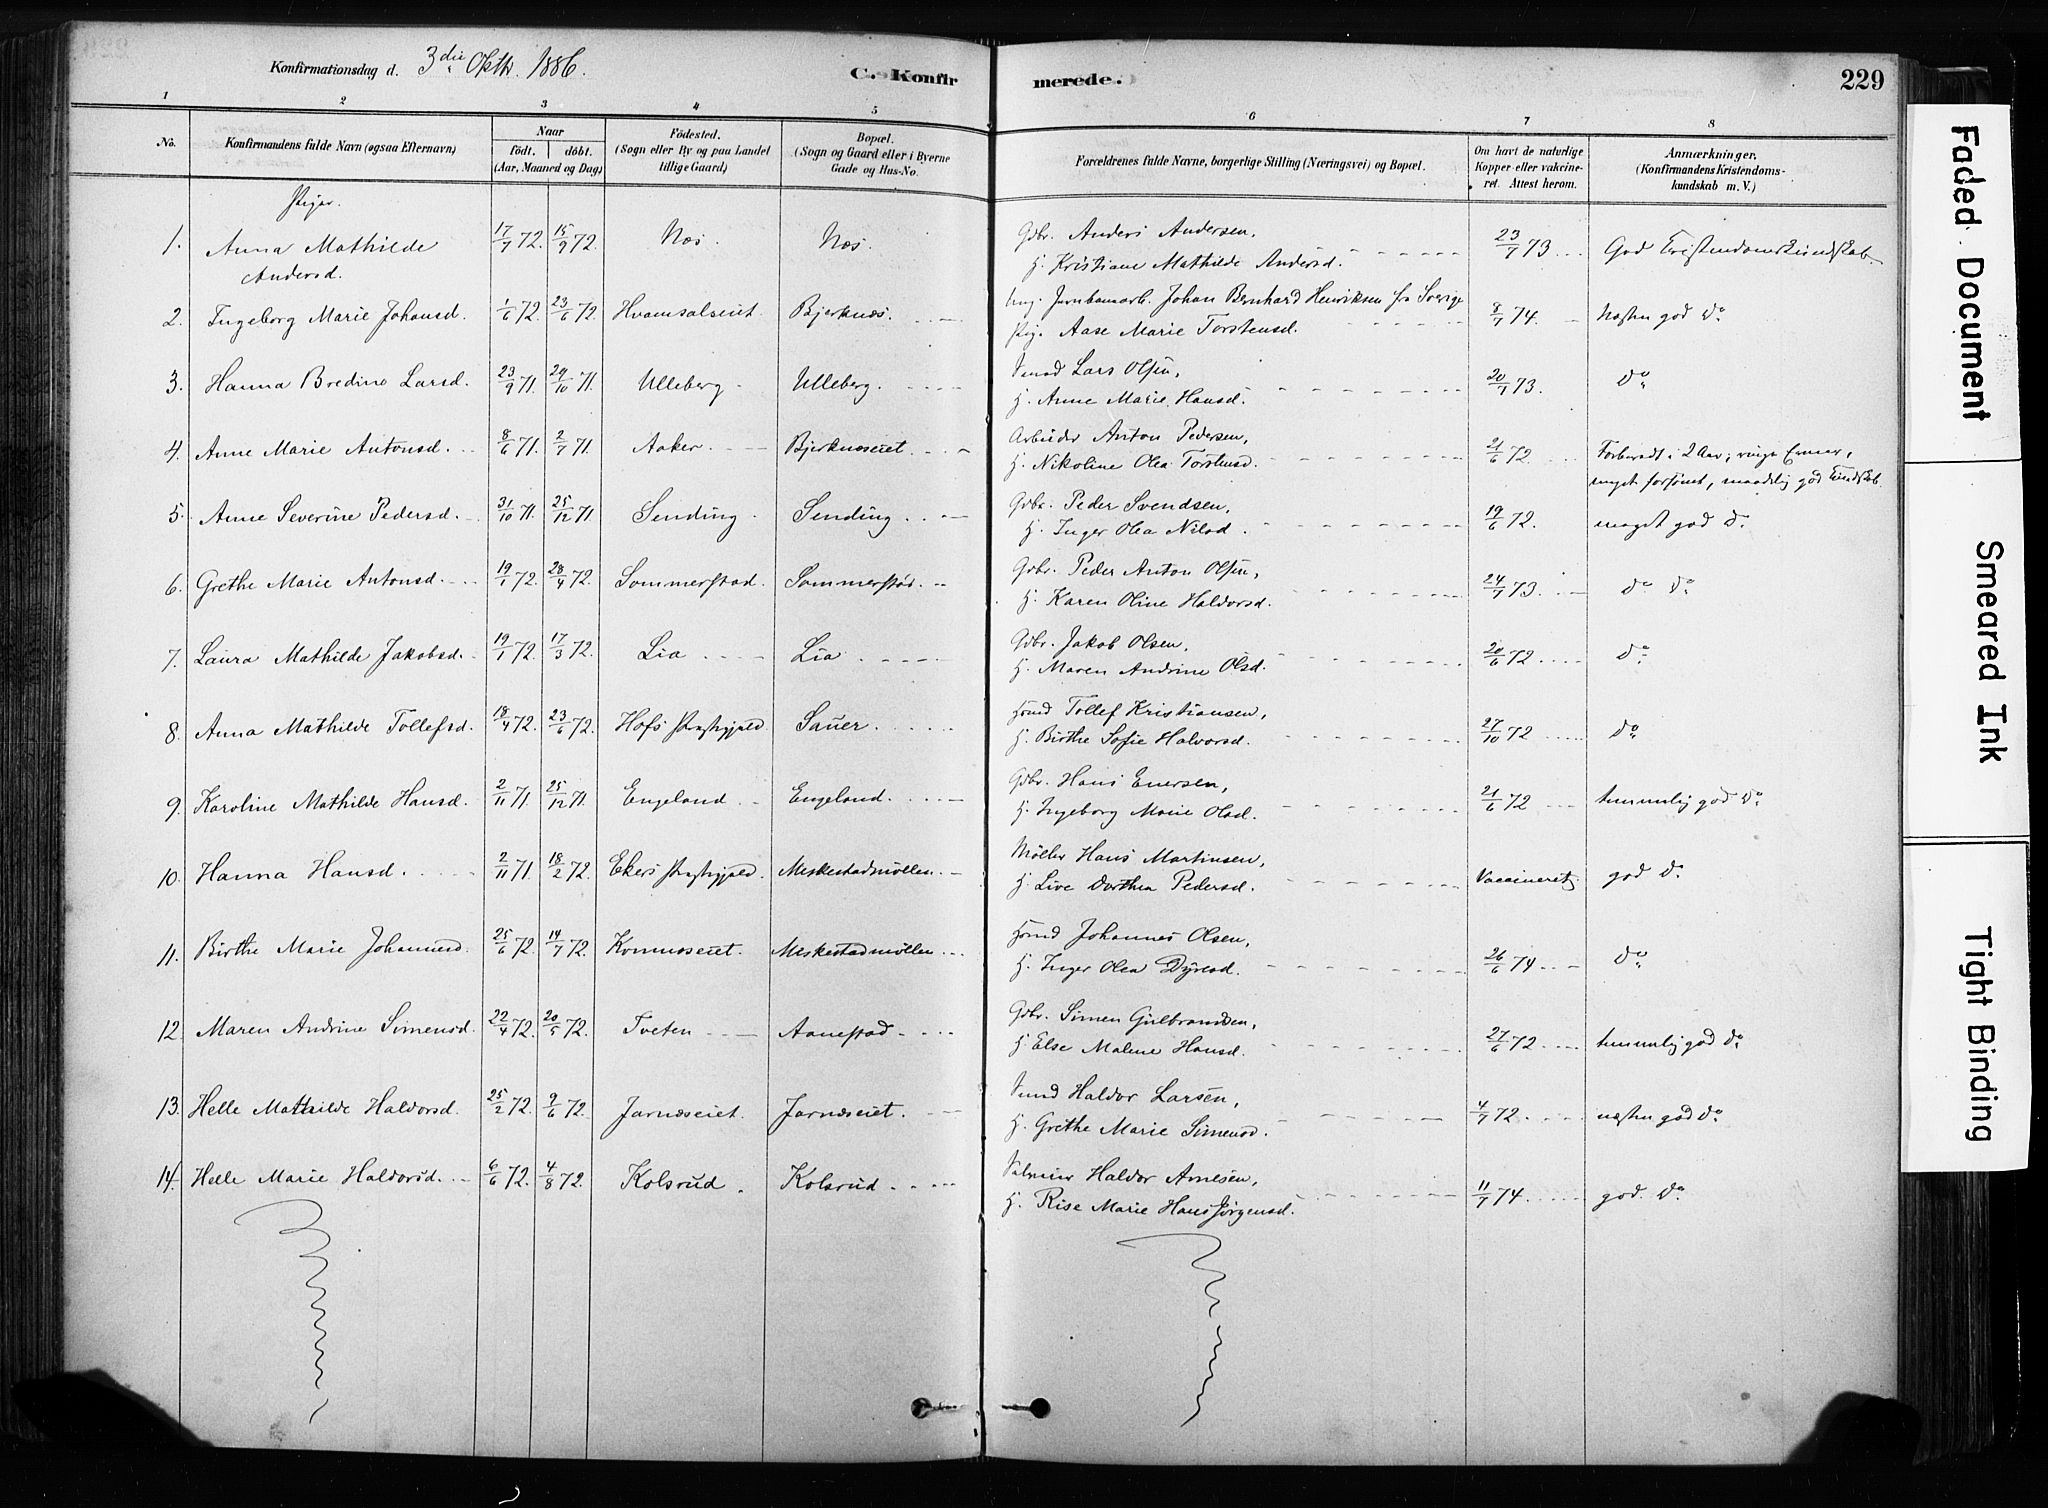 Konfirmationsdag d. 3die Oktb. 1886.
C. Konfirmerede.
229
1 2 3 4 5 6 7 8
No.
Konfirmandens fulde Navn (ogsaa Efternavn)
Naar
födt. döbt.
(Aar, Maaned og Dag)
Födested.
(Sogn eller By og paa Landet
tillige Gaard)
Bopæl.
(Sogn og Gaard eller i Byerne
Gade og Hus-No.
Forældrenes fulde Navne, borgerlige Stilling (Næringsvei) og Bopæl.
Om havt de naturlige
Kopper eller vakcine-
ret. Attest herom.
Anmærkninger.
(Konfirmandens Kristendoms-
kundskab m. V.)
Piger.
1. Anna Mathilde Andersd. 17/7 72. 15/9 72. Næs. Næs. Gdbr. Anders Andersen,
H. Kristiane Mathilde Andersd. 23/7 73 God Kristendomskundskab
2. Ingeborg Marie Johansd. 1/6 72. 23/6 72. Hvamsalseiet Bjerknæs. Ung. Jernbanearb. Johan Bernhard Henriksen fra Sverige
Pig. Aase Marie Torstensd. 8/7 74. Næsten god do
3. Hanna Bredine Larsd. 23/9 71. 29/10 71. Ulleberg Ulleberg. Lars Olsen,
H. Anne Marie Hansd. 20/7 73. do
4. Anne Marie Antonsd. 8/6 71. 2/7 71. Aaker. Bjerknæseiet. Arbeider Anton Pedersen,
H. Nikoline Olea Torstensd. 21/6 72. Forberedt i 2 Aar; ringe Evner,
meget forsömt, maadelig god Kundskab.
5. Anne Severine Pedersd. 31/10 71. 25/12 71. Sending. Sending. Gdbr. Peder Svendsen,
H. Inger Olea Nilsd. 19/6 72. meget god do
6. Grethe Marie Antonsd. 19/1 72. 28/4 72. Sommerstad. Sommerstad. Gdbr. Peder Anton Olsen,
H. Karen Oline Haldorsd. 24/7 73. do do
7. Laura Mathilde Jakobsd. 19/1 72. 17/3 72. Lia Lia Gdbr. Jakob Olsen,
H. Maren Andrine Olsd. 20/6 72 do
8. Anna Mathilde Tollefsd. 18/4 72. 23/6 72. Hofs Præstegjæld Sauer. Tollef Kristiansen,
H. Birthe Sofie Halvorsd. 27/10 72 do
9. Karoline Mathilde Hansd. 2/11 71. 25/12 71. Engeland Engeland. Gdbr. Hans Enersen,
H. Ingeborg Marie Olsd. 21/6 72 temmelig god do
10. Hanna Hansd. 2/11 71. 18/2 72. Ekers Præstegjæld. Meskestadmöllen. Möller Hans Martinsen,
H. Live Dorthea Pedersd. Vaccineret, god do
11. Birthe Marie Johannesd. 25/6 72. 14/7 72. Komnæseiet. Meskestadmöllen Johannes Olsen,
H. Inger Olea Dyresd. 26/6 74 do
12. Maren Andrine Simensd. 22/4 72. 20/5 72. Tveten Aanestad. Gdbr. Simen Gulbrandsen,
H. Else Malene Hansd. 27/6 72 temmelig god do
13. Helle Mathilde Haldorsd. 25/2 72. 9/6 72. Jarnæseiet. Jarnæseiet. Haldor Larsen,
H. Grethe Marie Simensd. 4/7 72. næsten god do
14. Helle Marie Haldorsd. 6/6 72. 4/8 72. Kolsrud. Kolsrud. Haldor Arnesen,
H. Rise Marie Hans Jörgensd. 11/7 74 god. do
Faded Document
Smeared Ink
Tight Binding